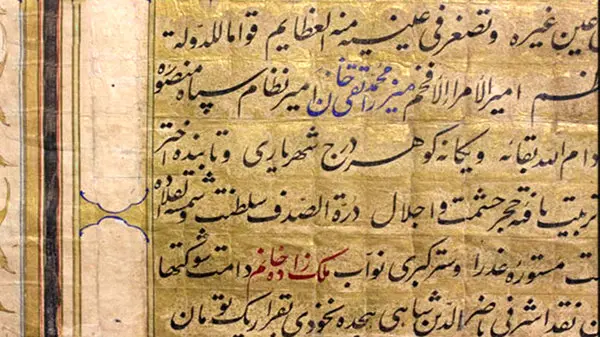 عین غیره و تصغر فی عینه العظایم قواما للدولة
امیر الأمراء الأفخم میرزا محمد تقی خان امیر نظام سپاه منصوره
دام الله بقائه و یکانه کوهر درج شهریاری و تابنده اختر
تربیت یافته حجر حشمت و اجلال درة الصدف سلطنت و شمسه قلاده
مستوره عذرا و ستر کبری نواب ملک زاده خانم دامت شوکتها
نقد اشرفی ناصر الدین شاهی هجده نخودی بقرار یک تومان